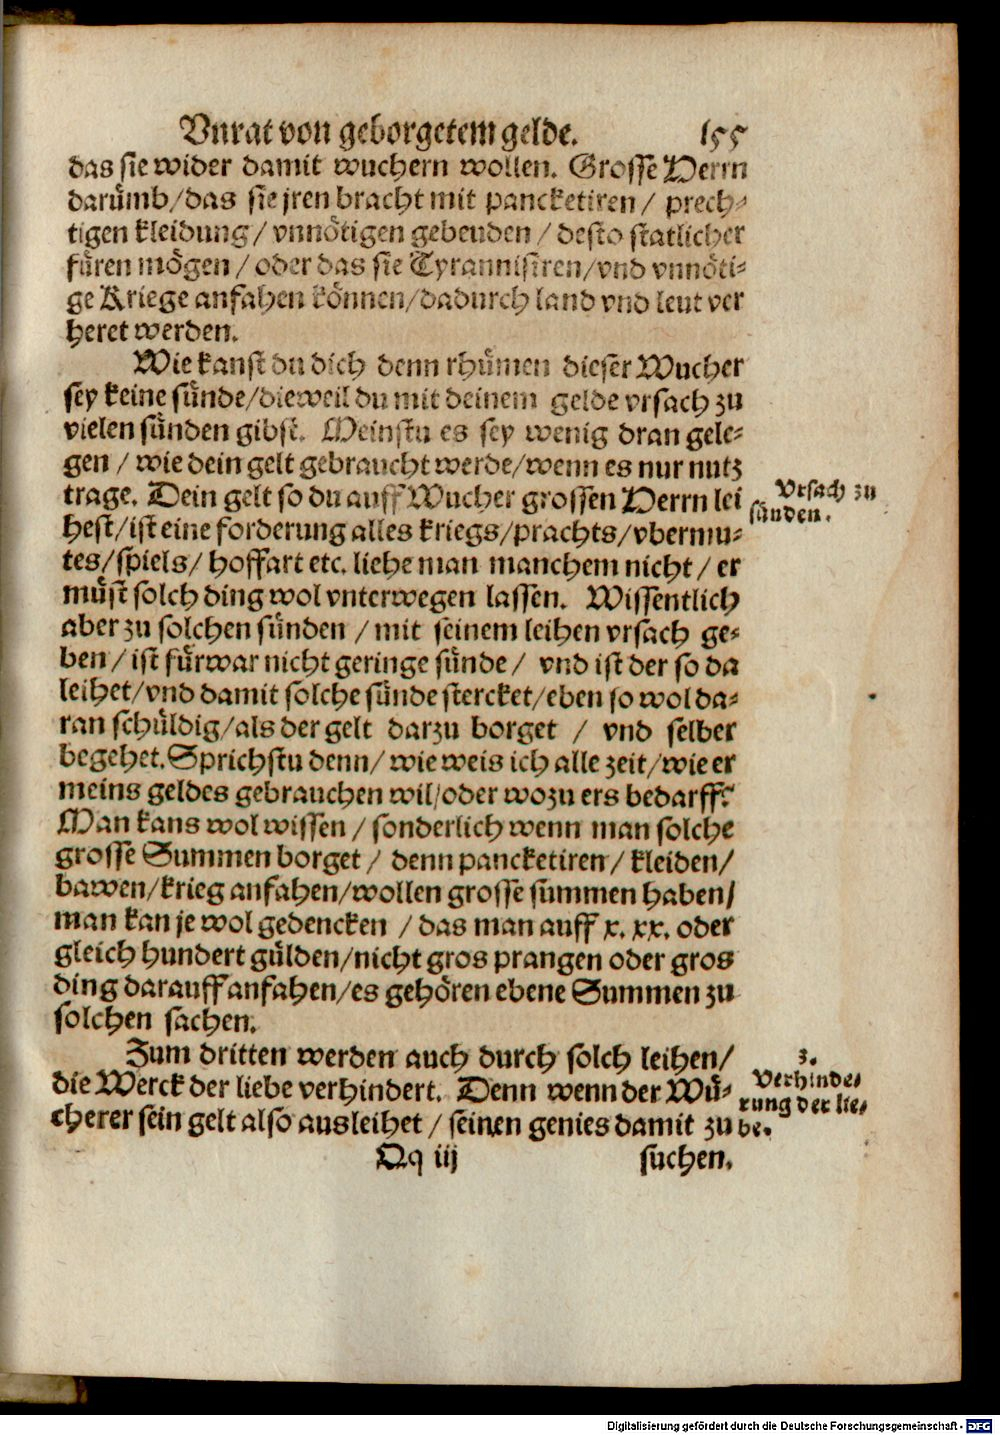 Vnrat von geborgetem gelde. 155
das sie wider damit wuchern wollen. Grosse Herrn
darümb/das sie jren bracht mit pancketiren / prech-
tigen kleidung / vnnötigen gebeuden / desto statlicher
füren mögen / oder das sie Tyrannisiren/vnd vnnöti-
ge Kriege anfahen können/dadurch land vnd leut ver
heret werden.
Wie kanst du dich denn rhümen dieser Wucher
sey keine sünde/dieweil du mit deinem gelde vrsach zu
vielen sünden gibst. Meinstu es sey wenig dran gele-
gen / wie dein gelt gebraucht werde/wenn es nur nutz
trage. Dein gelt so du auff Wucher grossen Herrn lei
hest/ist eine forderung alles kriegs/prachts/vbermu-
tes/spiels/ hoffart etc. liehe man manchem nicht / er
müst solch ding wol vnterwegen lassen. Wissentlich
aber zu solchen sünden / mit seinem leihen vrsach ge-
ben / ist fürwar nicht geringe sünde / vnd ist der so da
leihet/vnd damit solche sünde stercket/eben so wol da-
ran schüldig/als der gelt darzu borget / vnd selber
begehet. Sprichstu denn/ wie weis ich alle zeit/wie er
meins geldes gebrauchen wil/oder wozu ers bedarff?
Man kans wol wissen / sonderlich wenn man solche
grosse Summen borget / denn pancketiren / kleiden/
bawen/krieg anfahen/wollen grosse summen haben/
man kan je wol gedencken / das man auff x. xx. oder
gleich hundert gülden/nicht gros prangen oder gros
ding darauff anfahen/es gehören ebene Summen zu
solchen sachen.
Zum dritten werden auch durch solch leihen/
die Werck der liebe verhindert. Denn wenn der Wü-
cherer sein gelt also ausleihet / seinen genies damit zu
Qq iij suchen.
Vrsach zu
sünden.
3.
Verhinde-
rung der lie-
be.
Digitalisierung gefördert durch die Deutsche Forschungsgemeinschaft - DFG